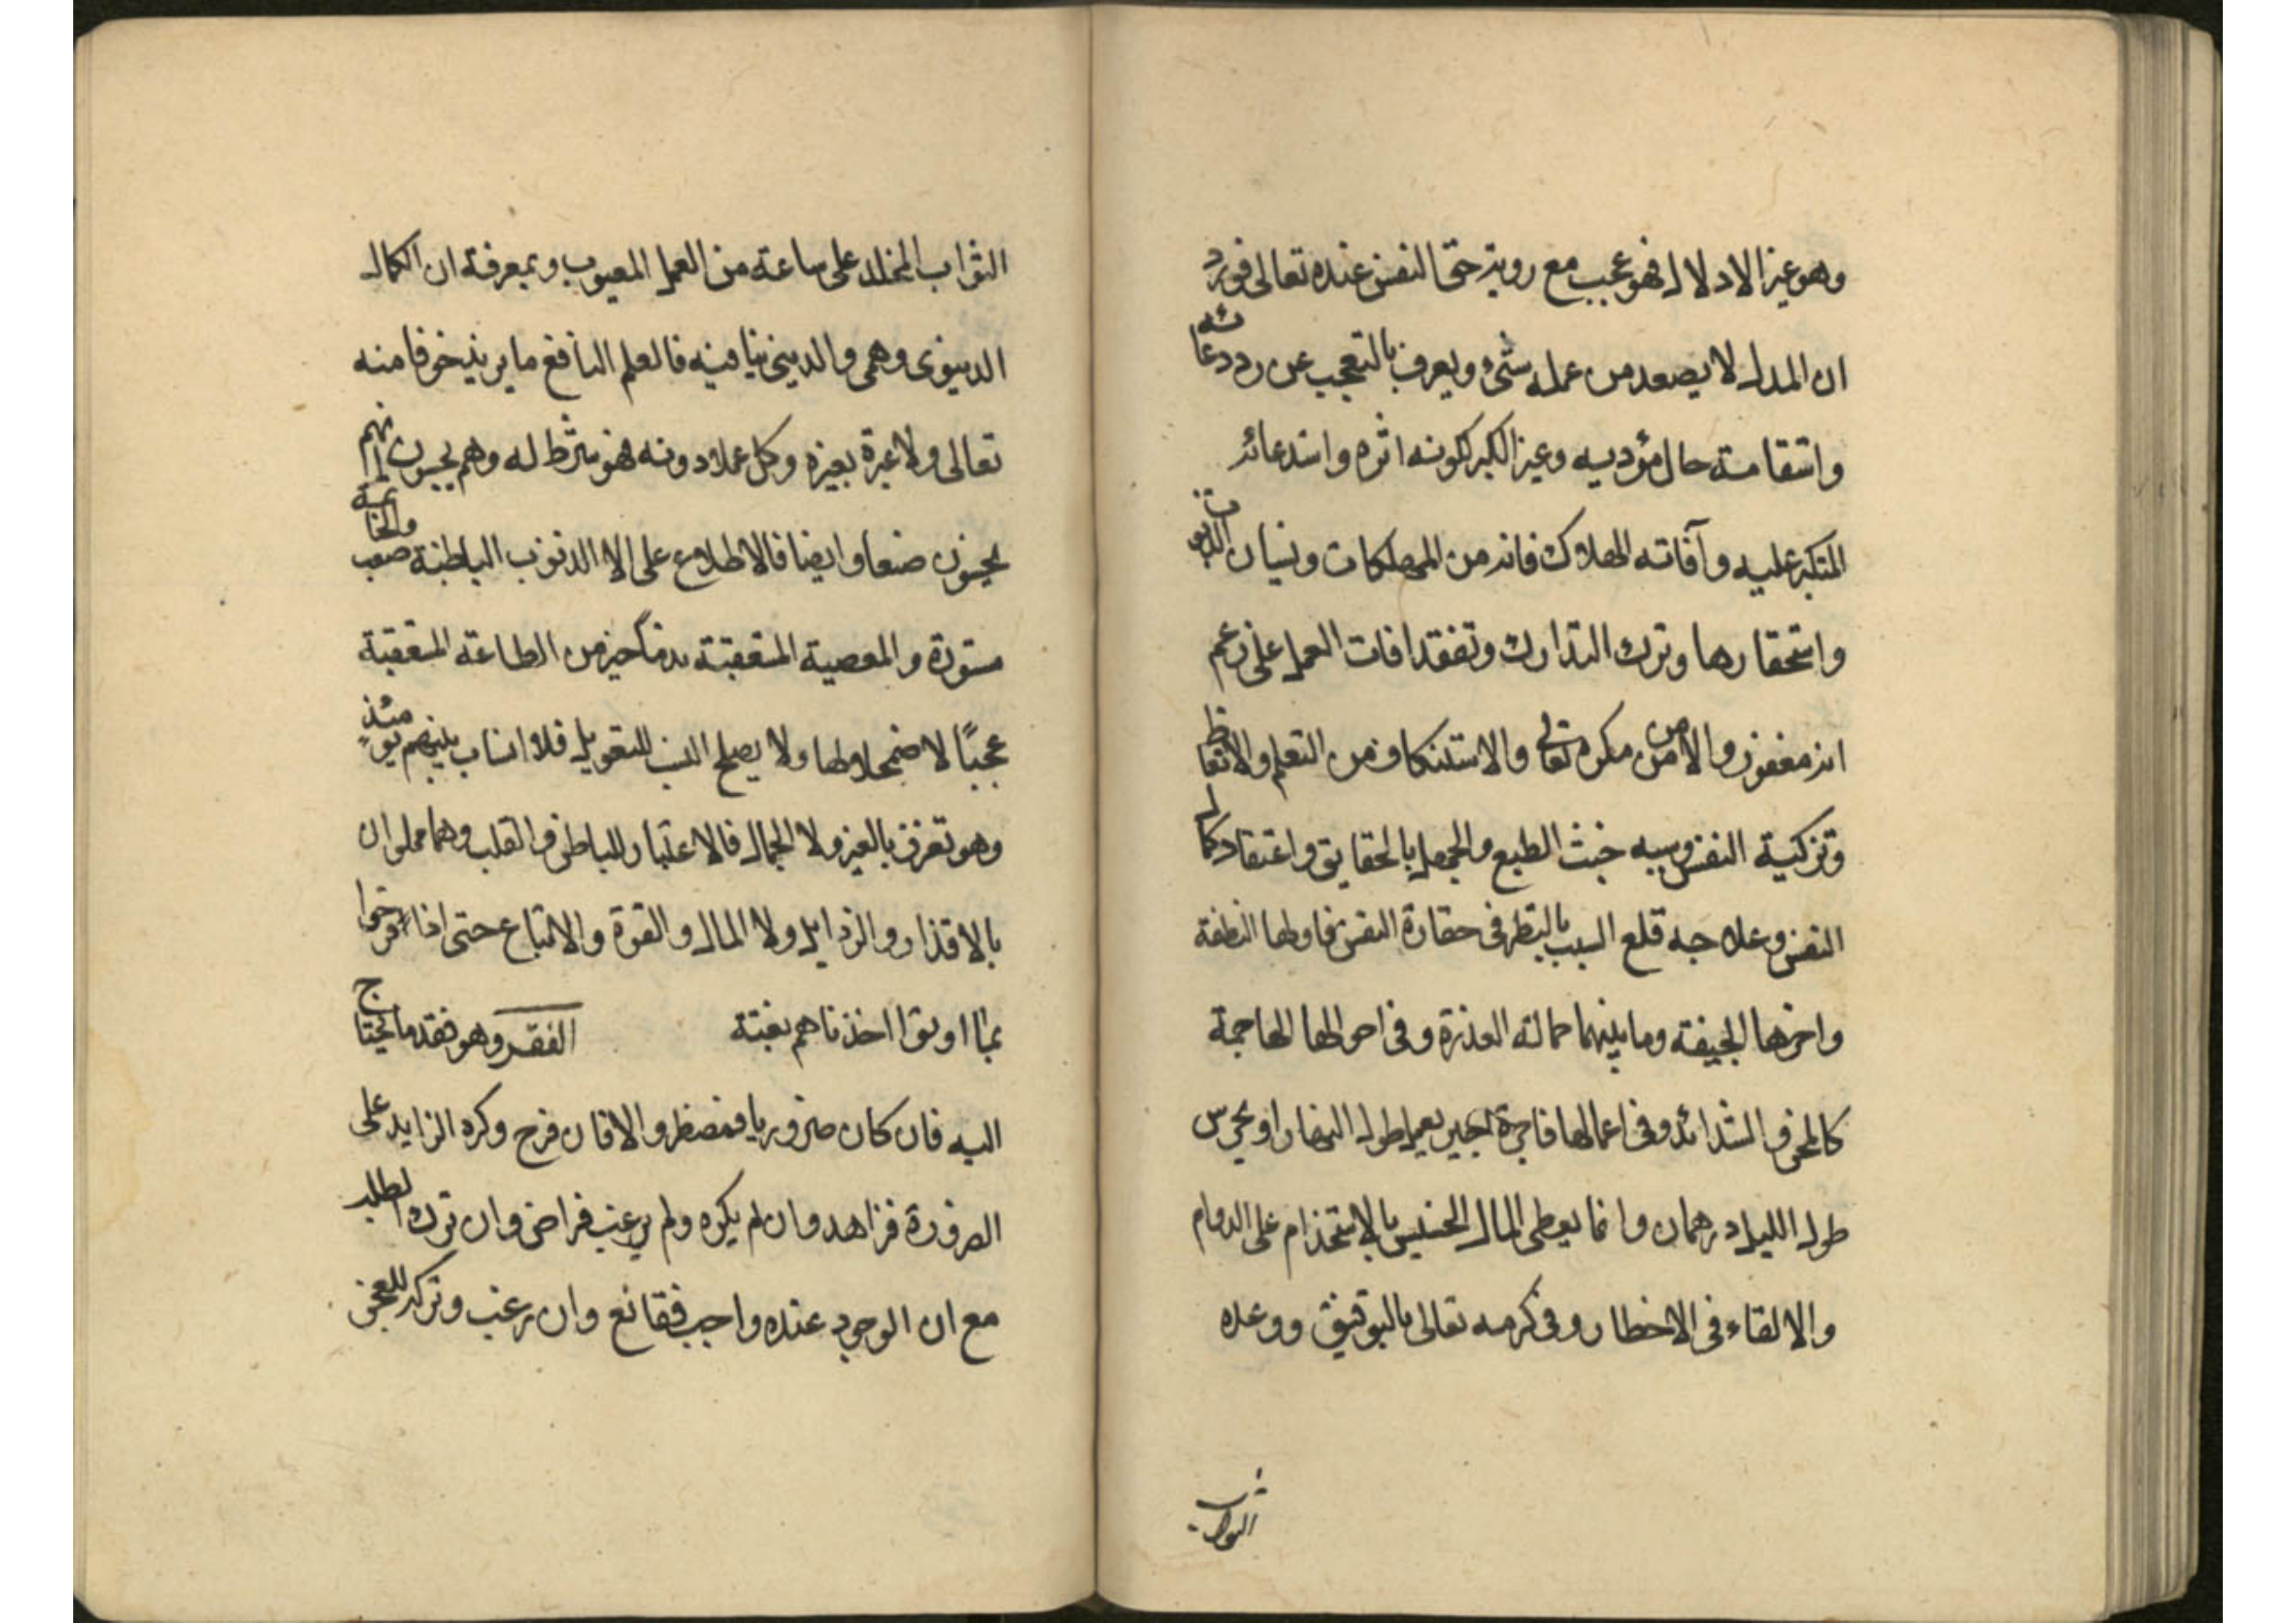 وهو غير الادلال فهو عجب مع روية حق النفس عنده تعالى فورد
ان المدل لا يصعد من عمله شئ ويعرف بالتعجب عن رد دعائه
واستقامة حال مؤديه وغير الكبر لكونه اثره واستدعائه
المتكبر عليه وآفاته الهلاك فانه من المهلكات ونسيان الذنوب
واستحقارها وترك التدارك وتفقد افات العمل على زعم
انه مغفور والامن من مكره تعالى والاستنكاف من التعلم والاتعاظ
وتزكية النفس وسببه خبث الطبع والجهل بالحقايق واعتقاد كمال
النفس وعلاجه قلع السبب بالنظر فى حقارة النفس فاولها النطفة
واخرها الجيفة وما بينهما حمالة العذرة وفى احوالها الهاجمة
كالمحن والشدائد وفى اعمالها فاجرة اجير يعمل طول النهار او يحرس
طول الليل درهمان وانما يعطى المال الخسيس بالاستخدام على الدوام
والالقاء فى الاخطار وفى كرمه تعالى بالتوفيق ووعده
الثواب
الثواب المخلد على ساعة من العمل المعيوب وبمعرفة ان الكمال
الدنيوى وهمى والدينى ينافيه فالعلم النافع ما يزيد خوفا منه
تعالى ولا عبرة بغيره وكل عملا دونه فهو شرط له وهم يحسبون انهم
يحسنون صنعا وايضا فالاطلاع على الا الذنوب الباطنة صعب والخاتمة
مستورة والمعصية المتعقبة ندما خير من الطاعة المتعقبة
عجبًا لاضمحلالها ولا يصلح النسب للتعويل فلا انساب بينهم يومئذ
وهو تعزز بالغير ولا الجمال فالاعتبار للباطن والقلب وهما مملوان
بالاقذار والرذايل ولا المال والقوة والاتباع حتى اذا فرحوا
بما اوتوا اخذناهم بغتة الفقر وهو فقد ما يحتاج
اليه فان كان ضروريا فمضطر والا فان فرح وكره الزايد على
الضرورة فزاهد وان لم يكره ولم يرغب فراض وان ترك الطلب
مع ان الوجود عنده واحب فقانع وان رغب وتركه للعجز